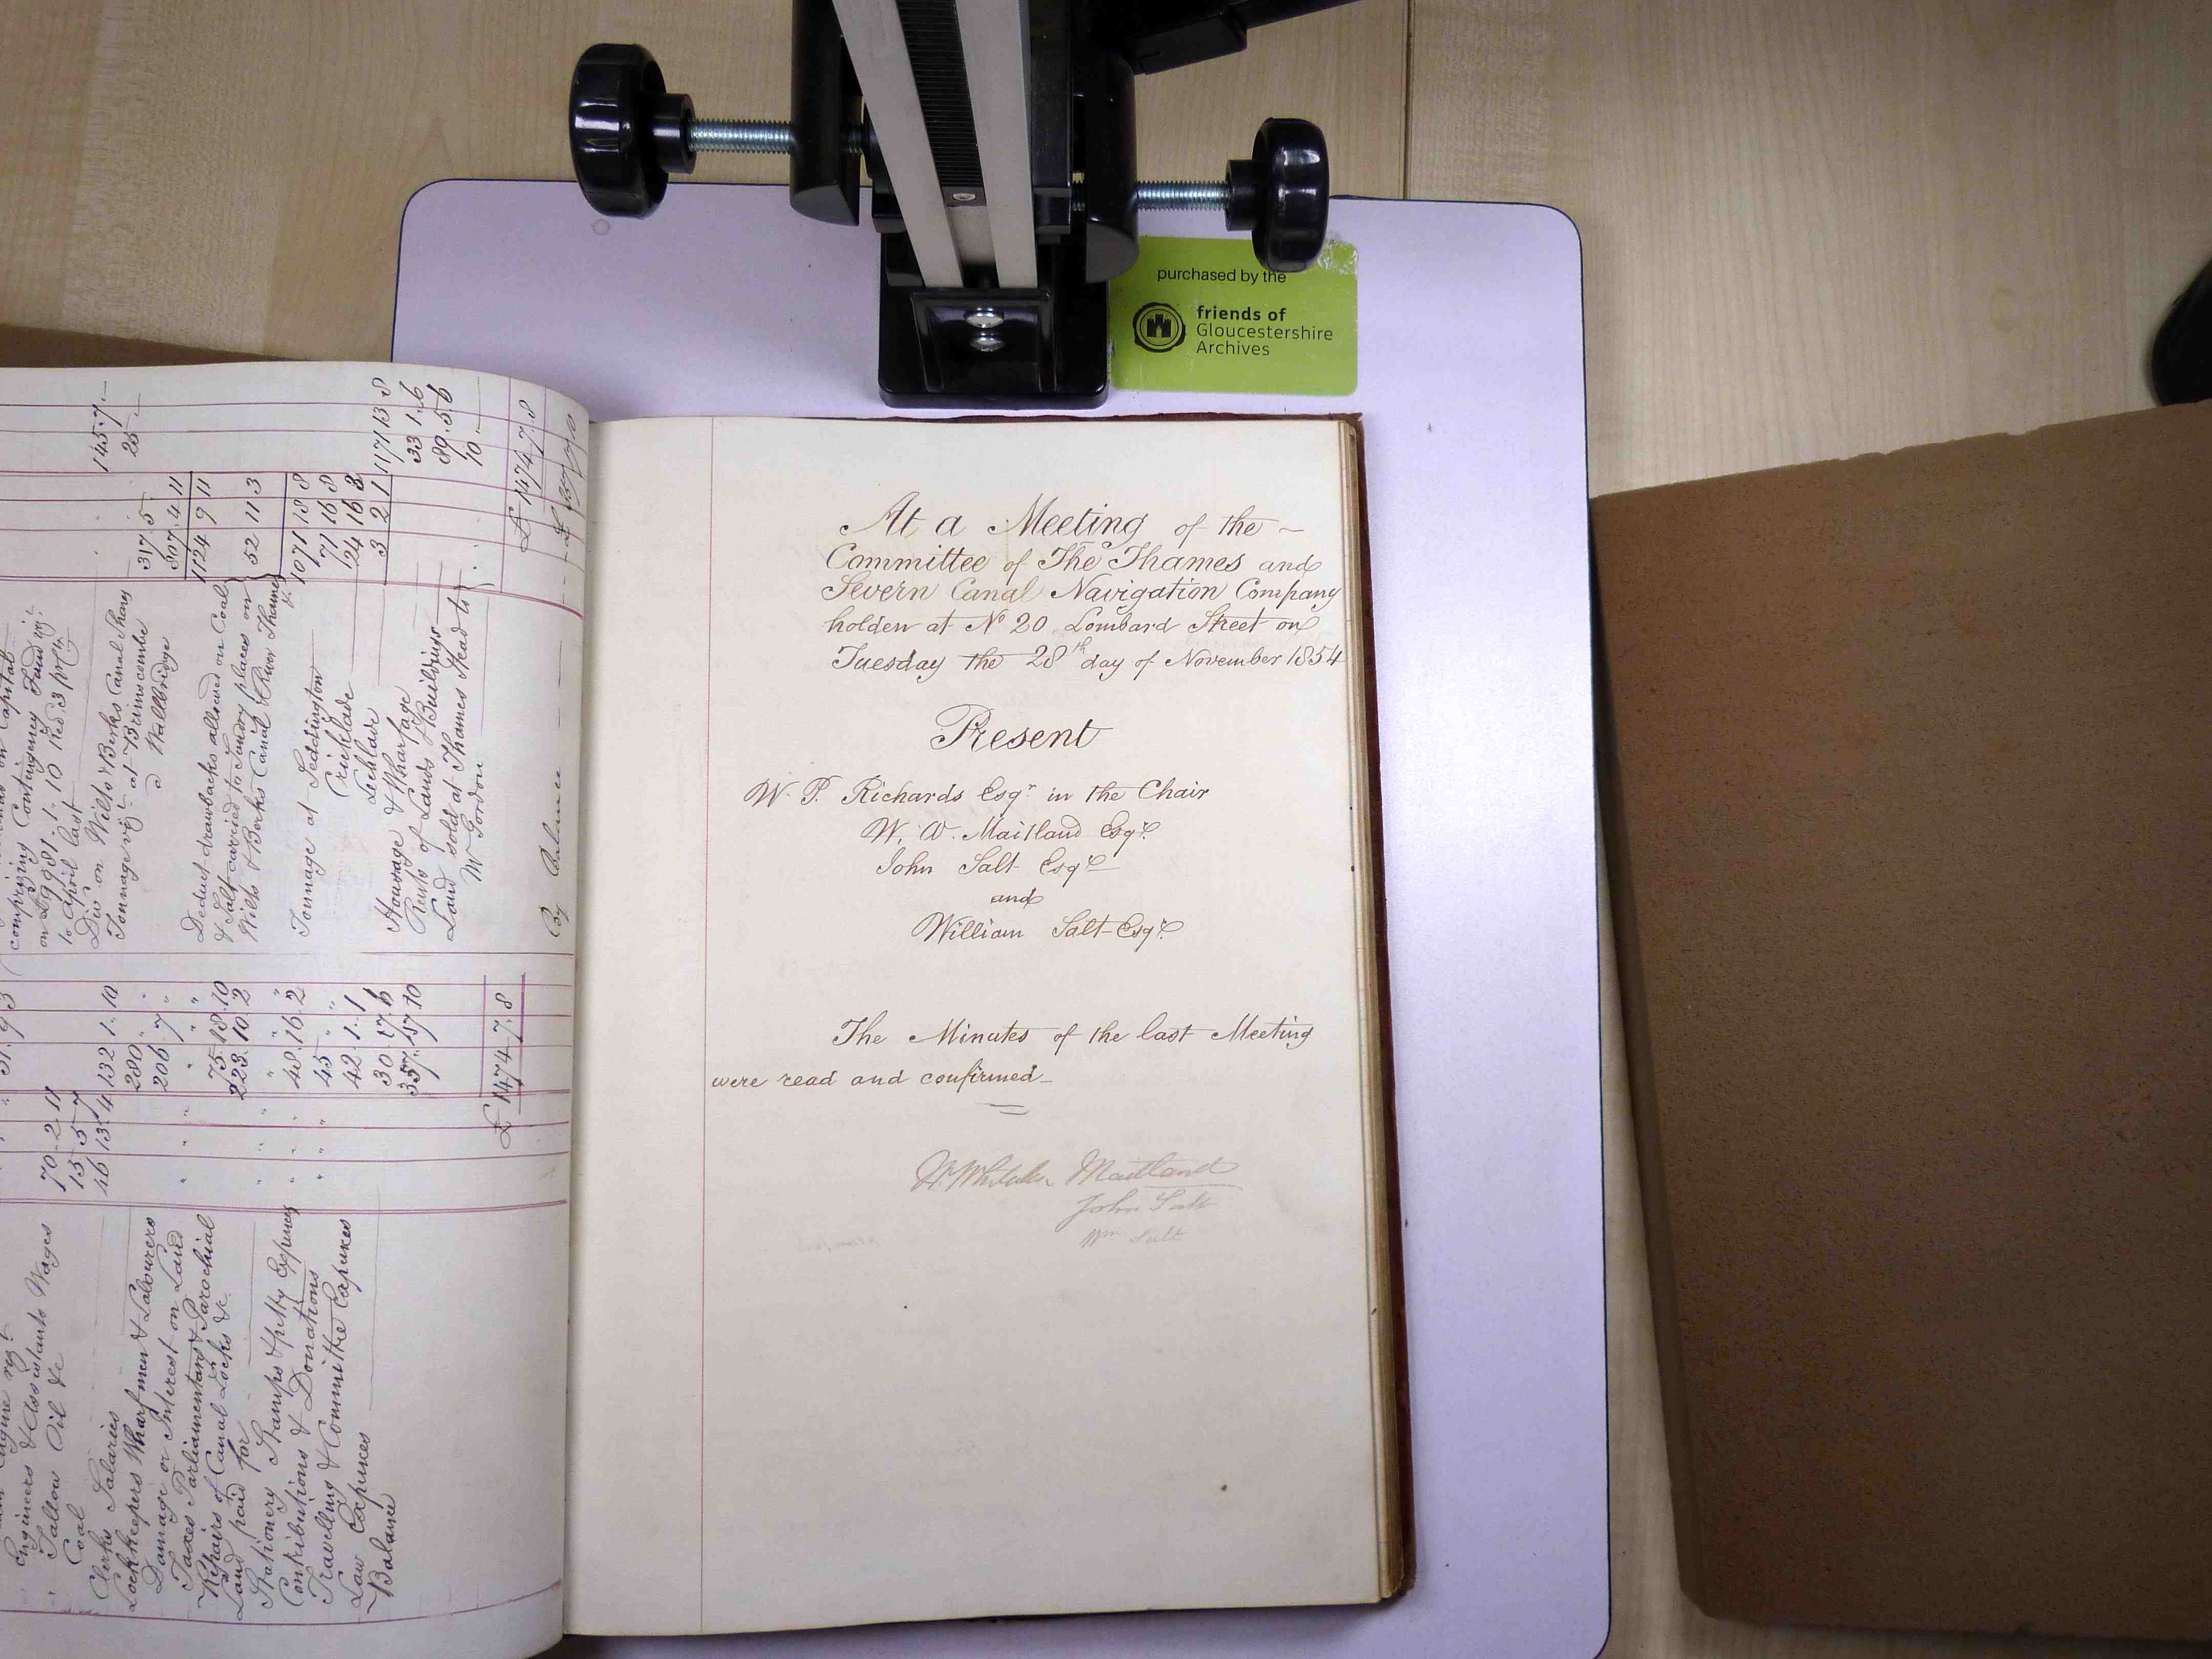 purchased by the
friends of
Gloucestershire
Archives
At a Meeting of the ~
Committee of The Thames and
Severn Canal Navigation Company
holden at No 20 Lombard Street on
Tuesday the 28th day of November 1854
Present
W. P. Richards Esqr in the Chair
W. W. Maitland Esqre
John Salt Esqre
and
William Salt Esqre
The Minutes of the last Meeting
were read and confirmed_
Maitland
John Salt
Wm Salt
Engineers & Assistants Wages 70 . 2 . 11
Tallow Oil &c 15 5 7
Coal 46 13 4 132 1 . 10
Clerks Salaries 280 " "
Lockkeepers Wharfmen & Labourers 206 7 "
Damage or Interest on Land " " "
Taxes Parliamentary & Parochial 75 . 18 . 10
Repairs of Canal Locks &c 223 10 2
Land paid for " " "
Stationery Stamps & petty Expences 48 . 16 . 2
Contributions & Donations 45 " "
Travelling & Committee Expences 42 . 1 . 1
Law Expences 30 17 . 6
Balance 357 . 10
£ 1474 . 7 . 8
comprizing Contingency Fund viz.
on £9981 . 1 . 10 Red. 3 pr Ct
to April last 145 . 7 . _
Div on Wilts & Berks Canal Shares 25 _
Tonnage viz. at Brimscombe 317 5
Wallbridge 807 . 4 11
1124 9 11
Deduct drawbacks allowed on Coal
& Salt carried to Sundry places on
Wilts & Berks Canal & River Thames &c 52 11 3
1071 18 8
Tonnage at Siddington 71 16 8
Cricklade 24 16 8
Lechlade 3 2 1 1171 13 8
Housage & Wharfage 33 1 . 6
Rents of Lands & Buildings 89 . 5 . 6
Land sold at Thames Head to
Mr Gordon 10 . _
£ 1474 . 7 . 8
By Balance